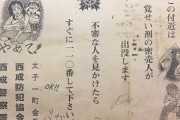 この付近は
覚せい剤の密売人が
出没します。
不審な人を見かけたら
すぐに一一〇番して下さい
やめて!
太子一町会
西成防犯協会
西成警察署